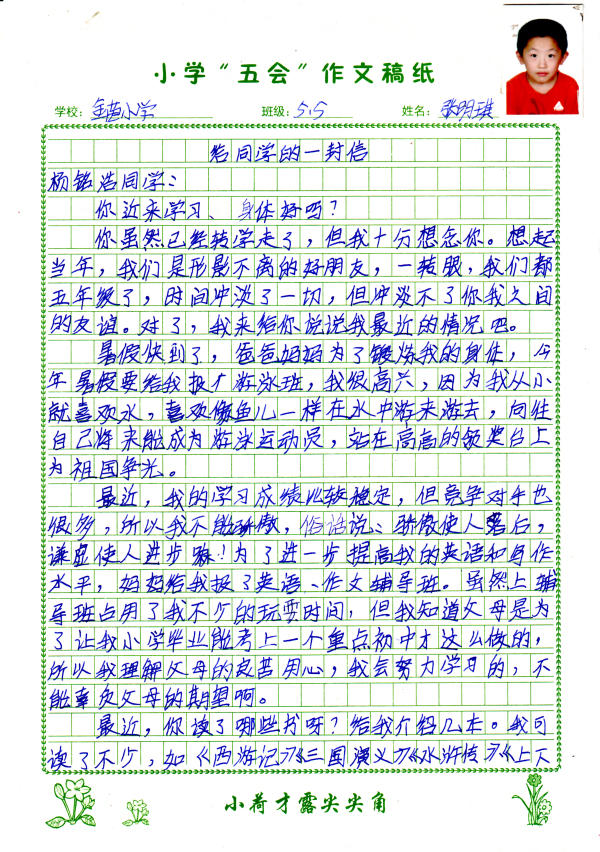 小学“五会”作文稿纸
学校: 金苗小学 班级: 5.5 姓名: 张明琪
给同学的一封信
杨铭浩同学：
你近来学习、身体好吗？
你虽然已经转学走了，但我十分想念你。想起
当年，我们是形影不离的好朋友，一转眼，我们都
五年级了，时间冲淡了一切，但冲淡不了你我之间
的友谊。对了，我来给你说说我最近的情况吧。
暑假快到了，爸爸妈妈为了锻炼我的身体，今
年暑假要给我报个游泳班，我很高兴，因为我从小
就喜欢水，喜欢像鱼儿一样在水中游来游去，向往
自己将来能成为游泳运动员，站在高高的领奖台上
为祖国争光。
最近，我的学习成绩比较稳定，但竞争对手也
很多，所以我不能骄傲，俗话说：骄傲使人落后，
谦虚使人进步嘛！为了进一步提高我的英语和写作
水平，妈妈给我报了英语、作文辅导班。虽然上辅
导班占用了我不少的玩耍时间，但我知道父母是为
了让我小学毕业能考上一个重点初中才这么做的，
所以我理解父母的良苦用心，我会努力学习的，不
能辜负父母的期望啊。
最近，你读了哪些书呀？给我介绍几本。我可
读了不少，如《西游记》《三国演义》《水浒传》《上下
小荷才露尖尖角